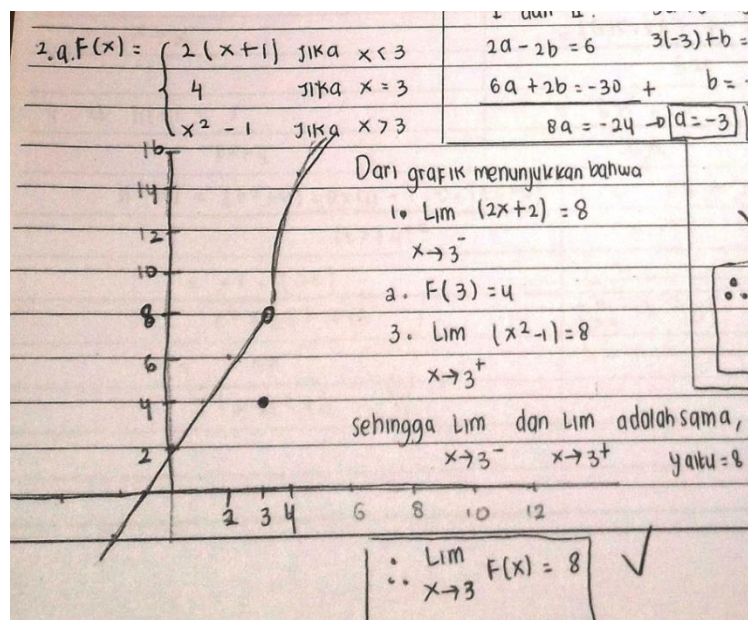 2.a. F(x) = { 2(x+1) JIKA x < 3
4 JIKA x = 3
x² - 1 JIKA x > 3
2a - 2b = 6 3(-3)+b =
6a + 2b = -30 + b =
8a = -24 → a = -3
16
14
12
10
8
6
4
2
2 3 4 6 8 10 12
Dari grafik menunjukkan bahwa
1. Lim (2x+2) = 8
x→3⁻
2. F(3) = 4
3. Lim (x²-1) = 8
x→3⁺
sehingga Lim dan Lim adalah sama,
x→3⁻ x→3⁺ yaitu = 8
∴ Lim F(x) = 8 ✓
x→3